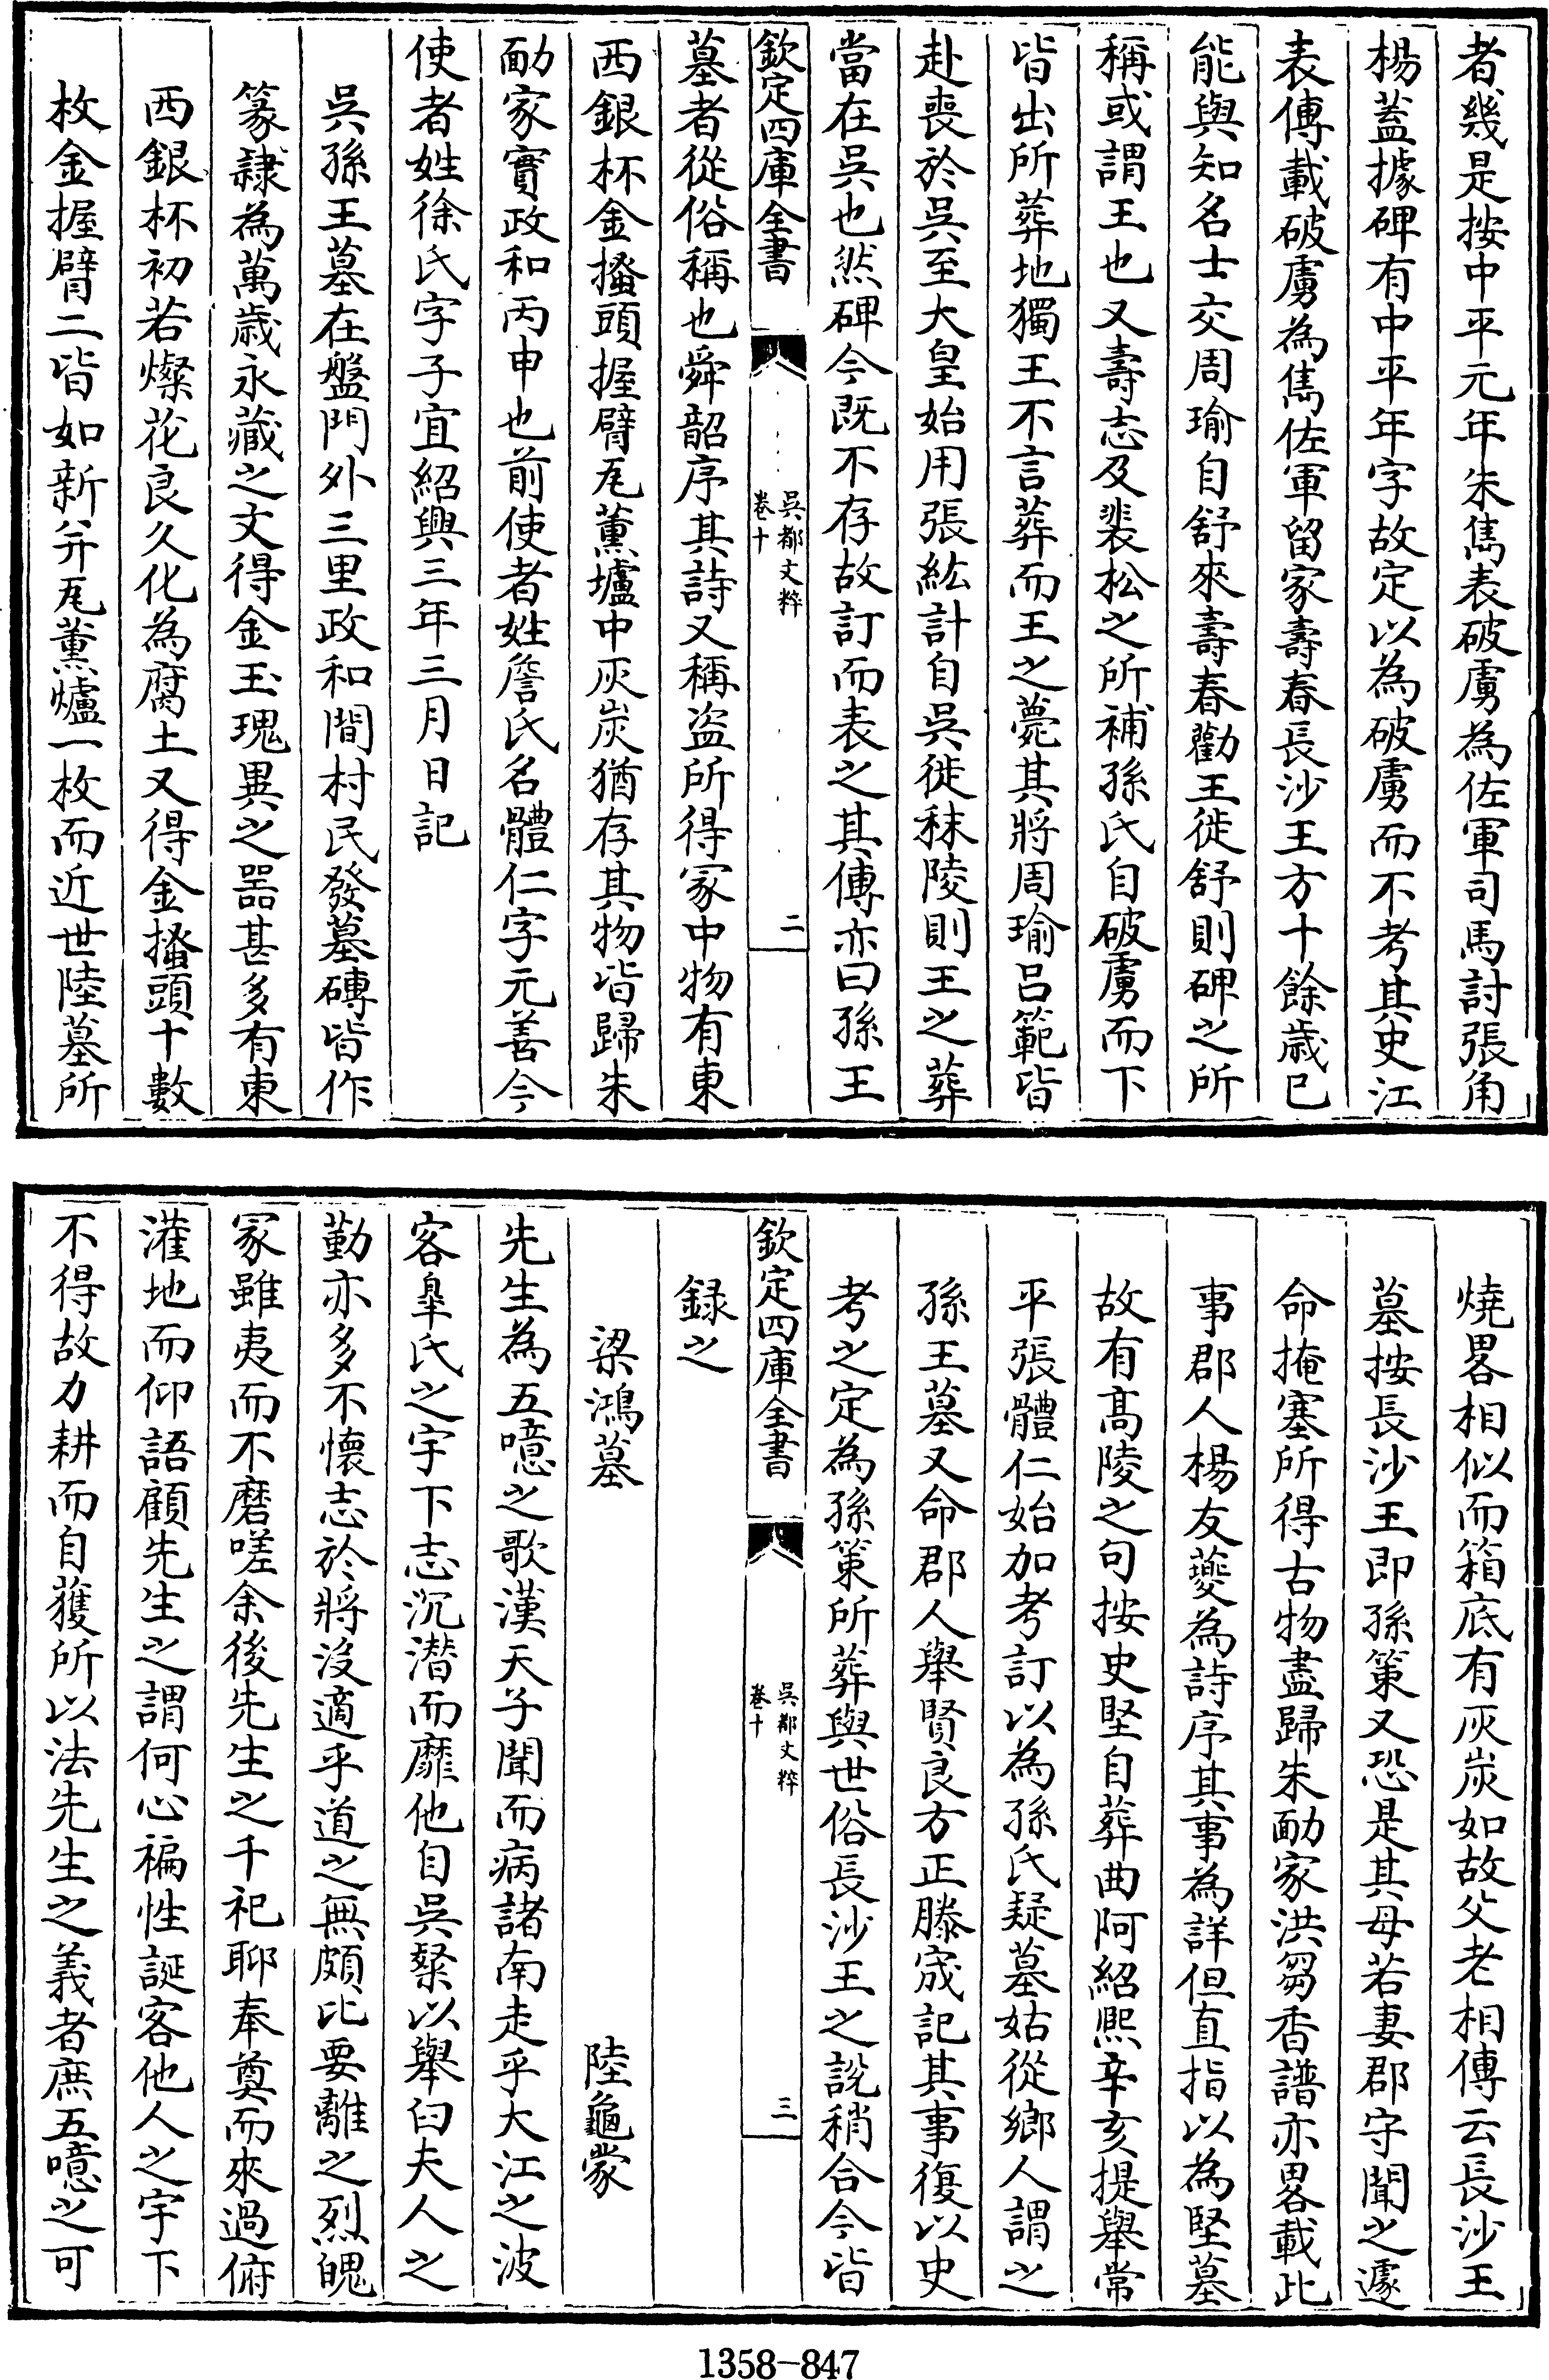 者幾是按中平元年朱雋表破虜為佐軍司馬討張角
楊蓋據碑有中平年字故定以為破虜而不考其史江
表傳載破虜為雋佐軍留家壽春長沙王方十餘歲已
能與知名士交周瑜自舒來壽春勸王徙舒則碑之所
稱或謂王也又壽志及裴松之所補孫氏自破虜而下
皆出所葬地獨王不言葬而王之薨其將周瑜呂範皆
赴喪於吳至大皇始用張紘計自吳徙秣陵則王之葬
當在吳也然碑今既不存故訂而表之其傳亦曰孫王
欽定四庫全書
吳都文粹
卷十
二
墓者從俗稱也舜韶序其詩又稱盜所得冢中物有東
西銀杯金搔頭握臂瓦薰壚中灰炭猶存其物皆歸朱
勔家實政和丙申也前使者姓詹氏名體仁字元善今
使者姓徐氏字子宜紹興三年三月日記
吳孫王墓在盤門外三里政和間村民發墓磚皆作
篆隸為萬歲永藏之文得金玉瑰異之器甚多有東
西銀杯初若燦花良久化為腐土又得金搔頭十數
枚金握臂二皆如新并瓦薰爐一枚而近世陸墓所
燒畧相似而箱底有灰炭如故父老相傳云長沙王
墓按長沙王即孫策又恐是其母若妻郡守聞之遽
命掩塞所得古物盡歸朱勔家洪芻香譜亦畧載此
事郡人楊友夔為詩序其事為詳但直指以為堅墓
故有高陵之句按史堅自葬曲阿紹熙辛亥提舉常
平張體仁始加考訂以為孫氏疑墓姑從鄉人謂之
孫王墓又命郡人舉賢良方正滕宬記其事復以史
考之定為孫策所葬與世俗長沙王之說稍合今皆
欽定四庫全書
吳都文粹
卷十
三
錄之
梁鴻墓　　陸龜蒙
先生為五噫之歌漢天子聞而病諸南走乎大江之波
客臯氏之宇下志沉潛而靡他自吳粲以舉臼夫人之
勤亦多不懷志於將沒適乎道之無頗比要離之烈魄
冢雖夷而不磨嗟余後先生之千祀聊奉奠而來過俯
灌地而仰語顧先生之謂何心褊性誕客他人之宇下
不得故力耕而自獲所以法先生之義者庶五噫之可
1358-847